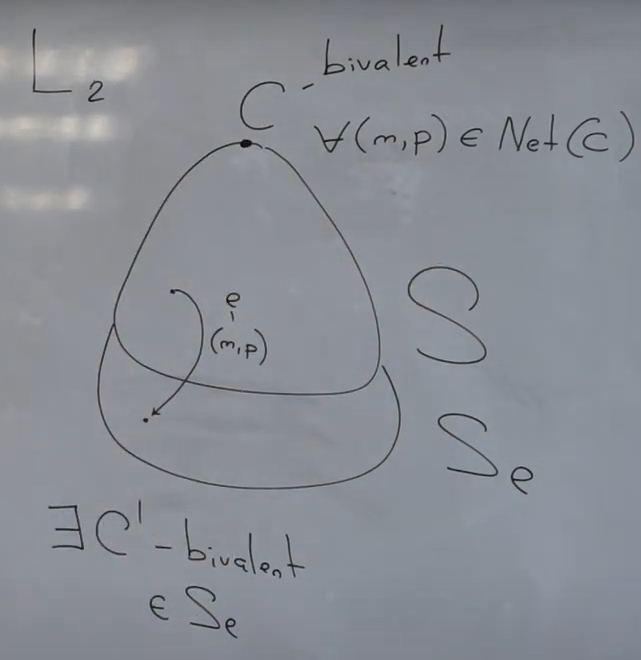 L₂
C - bivalent
∀(m,p) ∈ Net(C)
e
(m,p)
S
Sₑ
∃C' - bivalent
∈ Sₑ